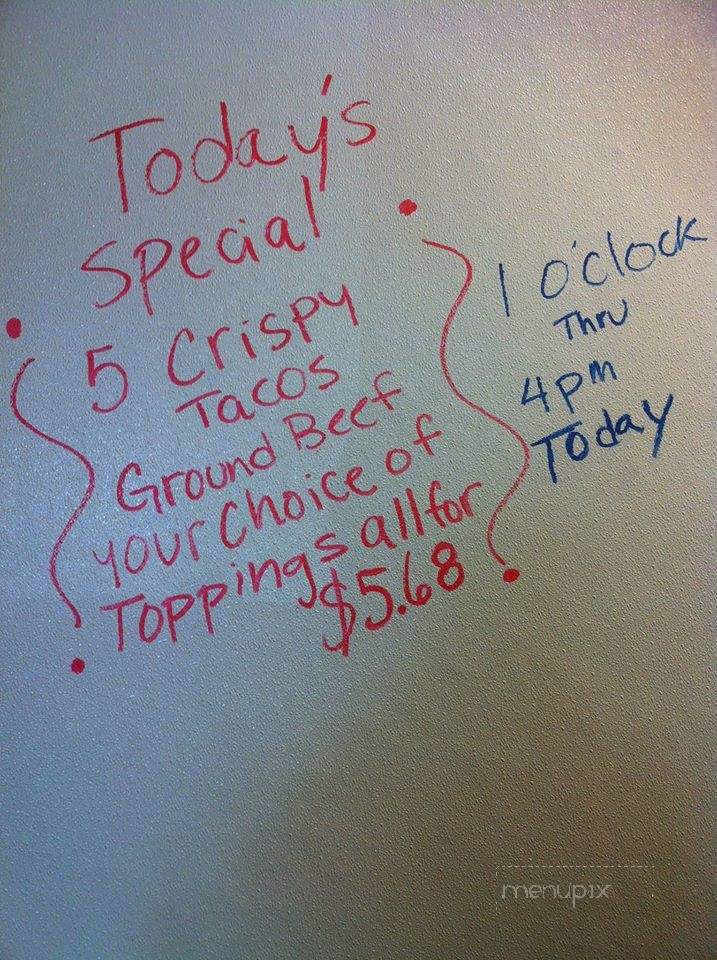 Today's
Special
5 Crispy
Tacos
Ground Beef
your Choice of
Toppings all for
$5.68
1 o'clock
Thru
4pm
Today
menupix